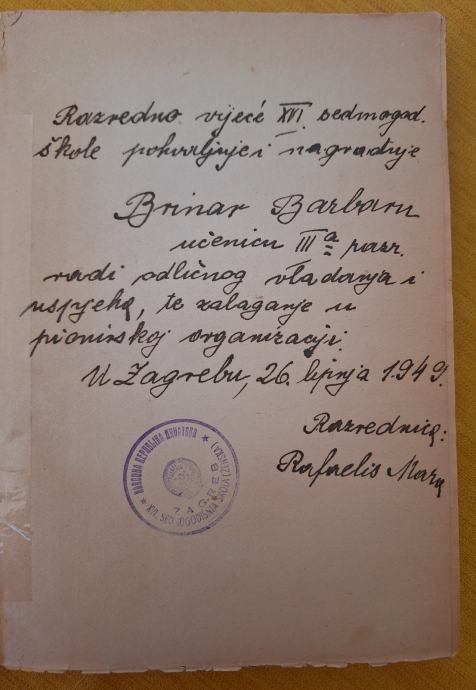 Razredno vijeće XVI sedmogod.
škole pohvaljuje i nagrađuje
Brinar Barbaru
učenicu IIIa razr.
radi odličnog vladanja i
uspjeha, te zalaganje u
pionirskoj organizaciji.
U Zagrebu, 26. lipnja 1949.
Razrednica:
Rafaelis Mara
NARODNA REPUBLIKA HRVATSKA
SEDMOGODIŠNJA ŠKOLA (ŽENSKA)
ZAGREB